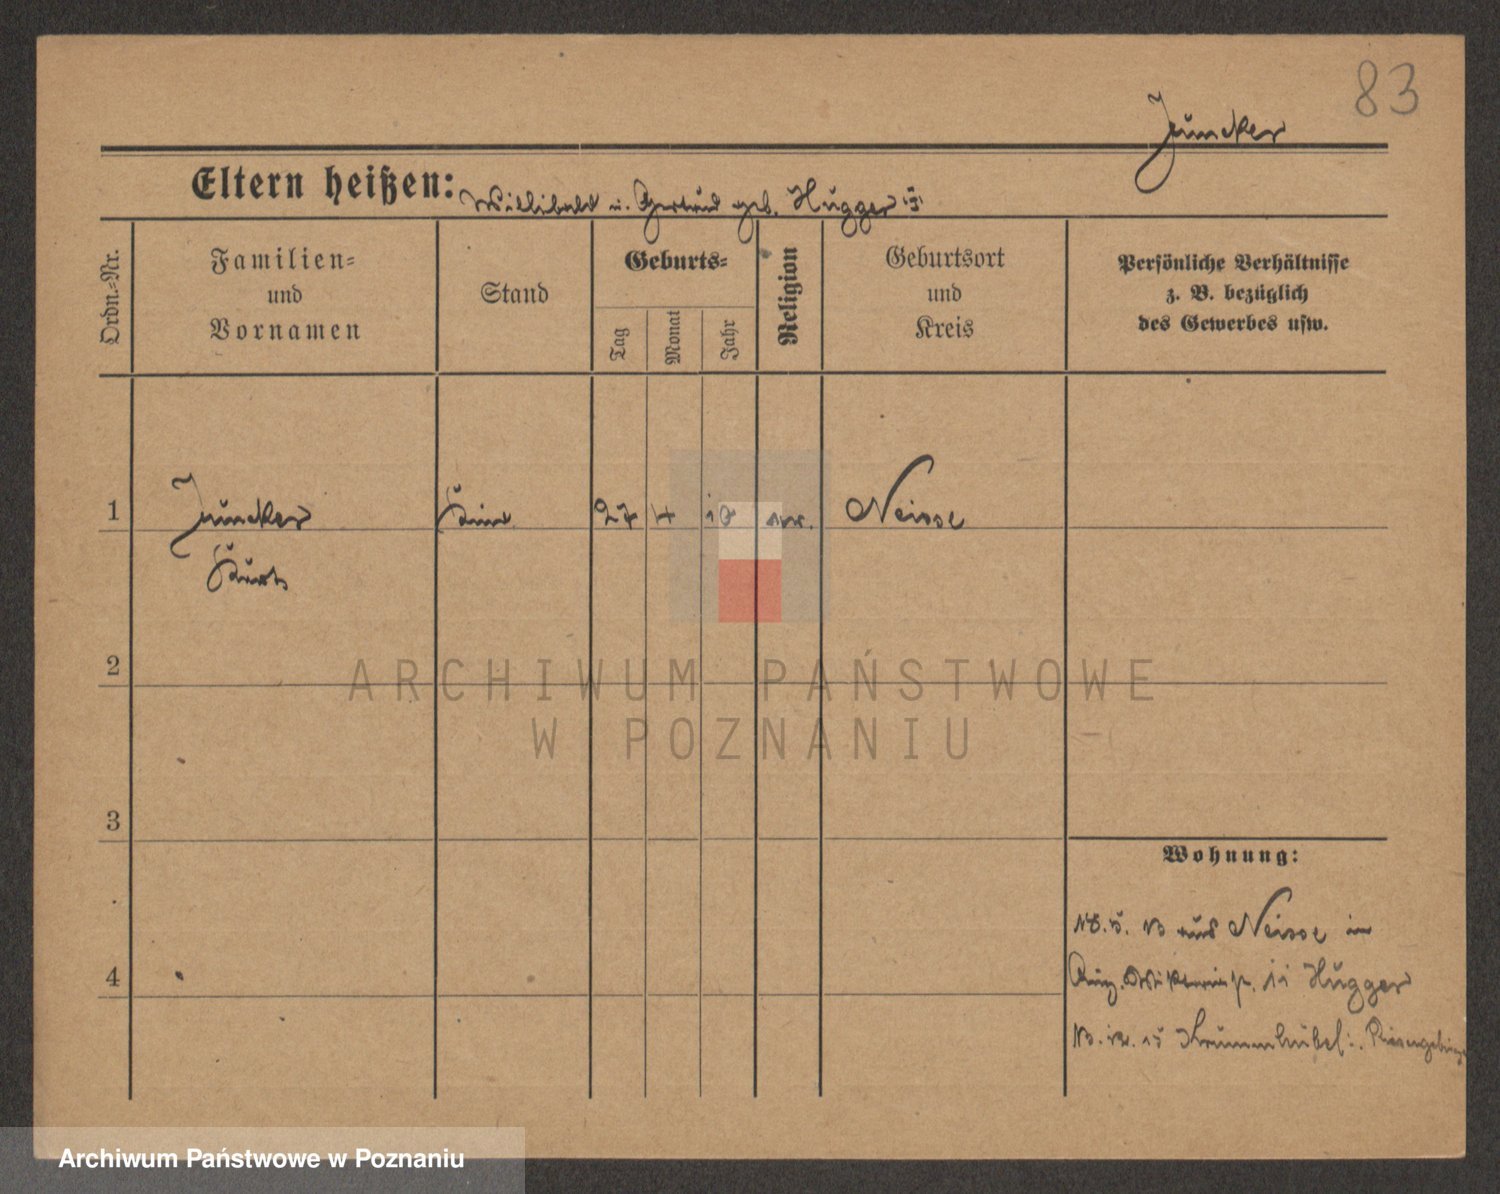 83
Juncker
Eltern heißen: Willibald u. Gertrud geb. Hugger
Ordn.-Nr.
Familien-
und
Vornamen
Stand
Geburts-
Tag
Monat
Jahr
Religion
Geburtsort
und
Kreis
Persönliche Verhältnisse
z. B. bezüglich
des Gewerbes usw.
1 Juncker 27 4 10 Neisse
Kurt
2
3
4
Wohnung:
aus Neisse in
Hugger
Krummhübel i. Riesengebirge
ARCHIWUM PAŃSTWOWE
W POZNANIU
Archiwum Państwowe w Poznaniu